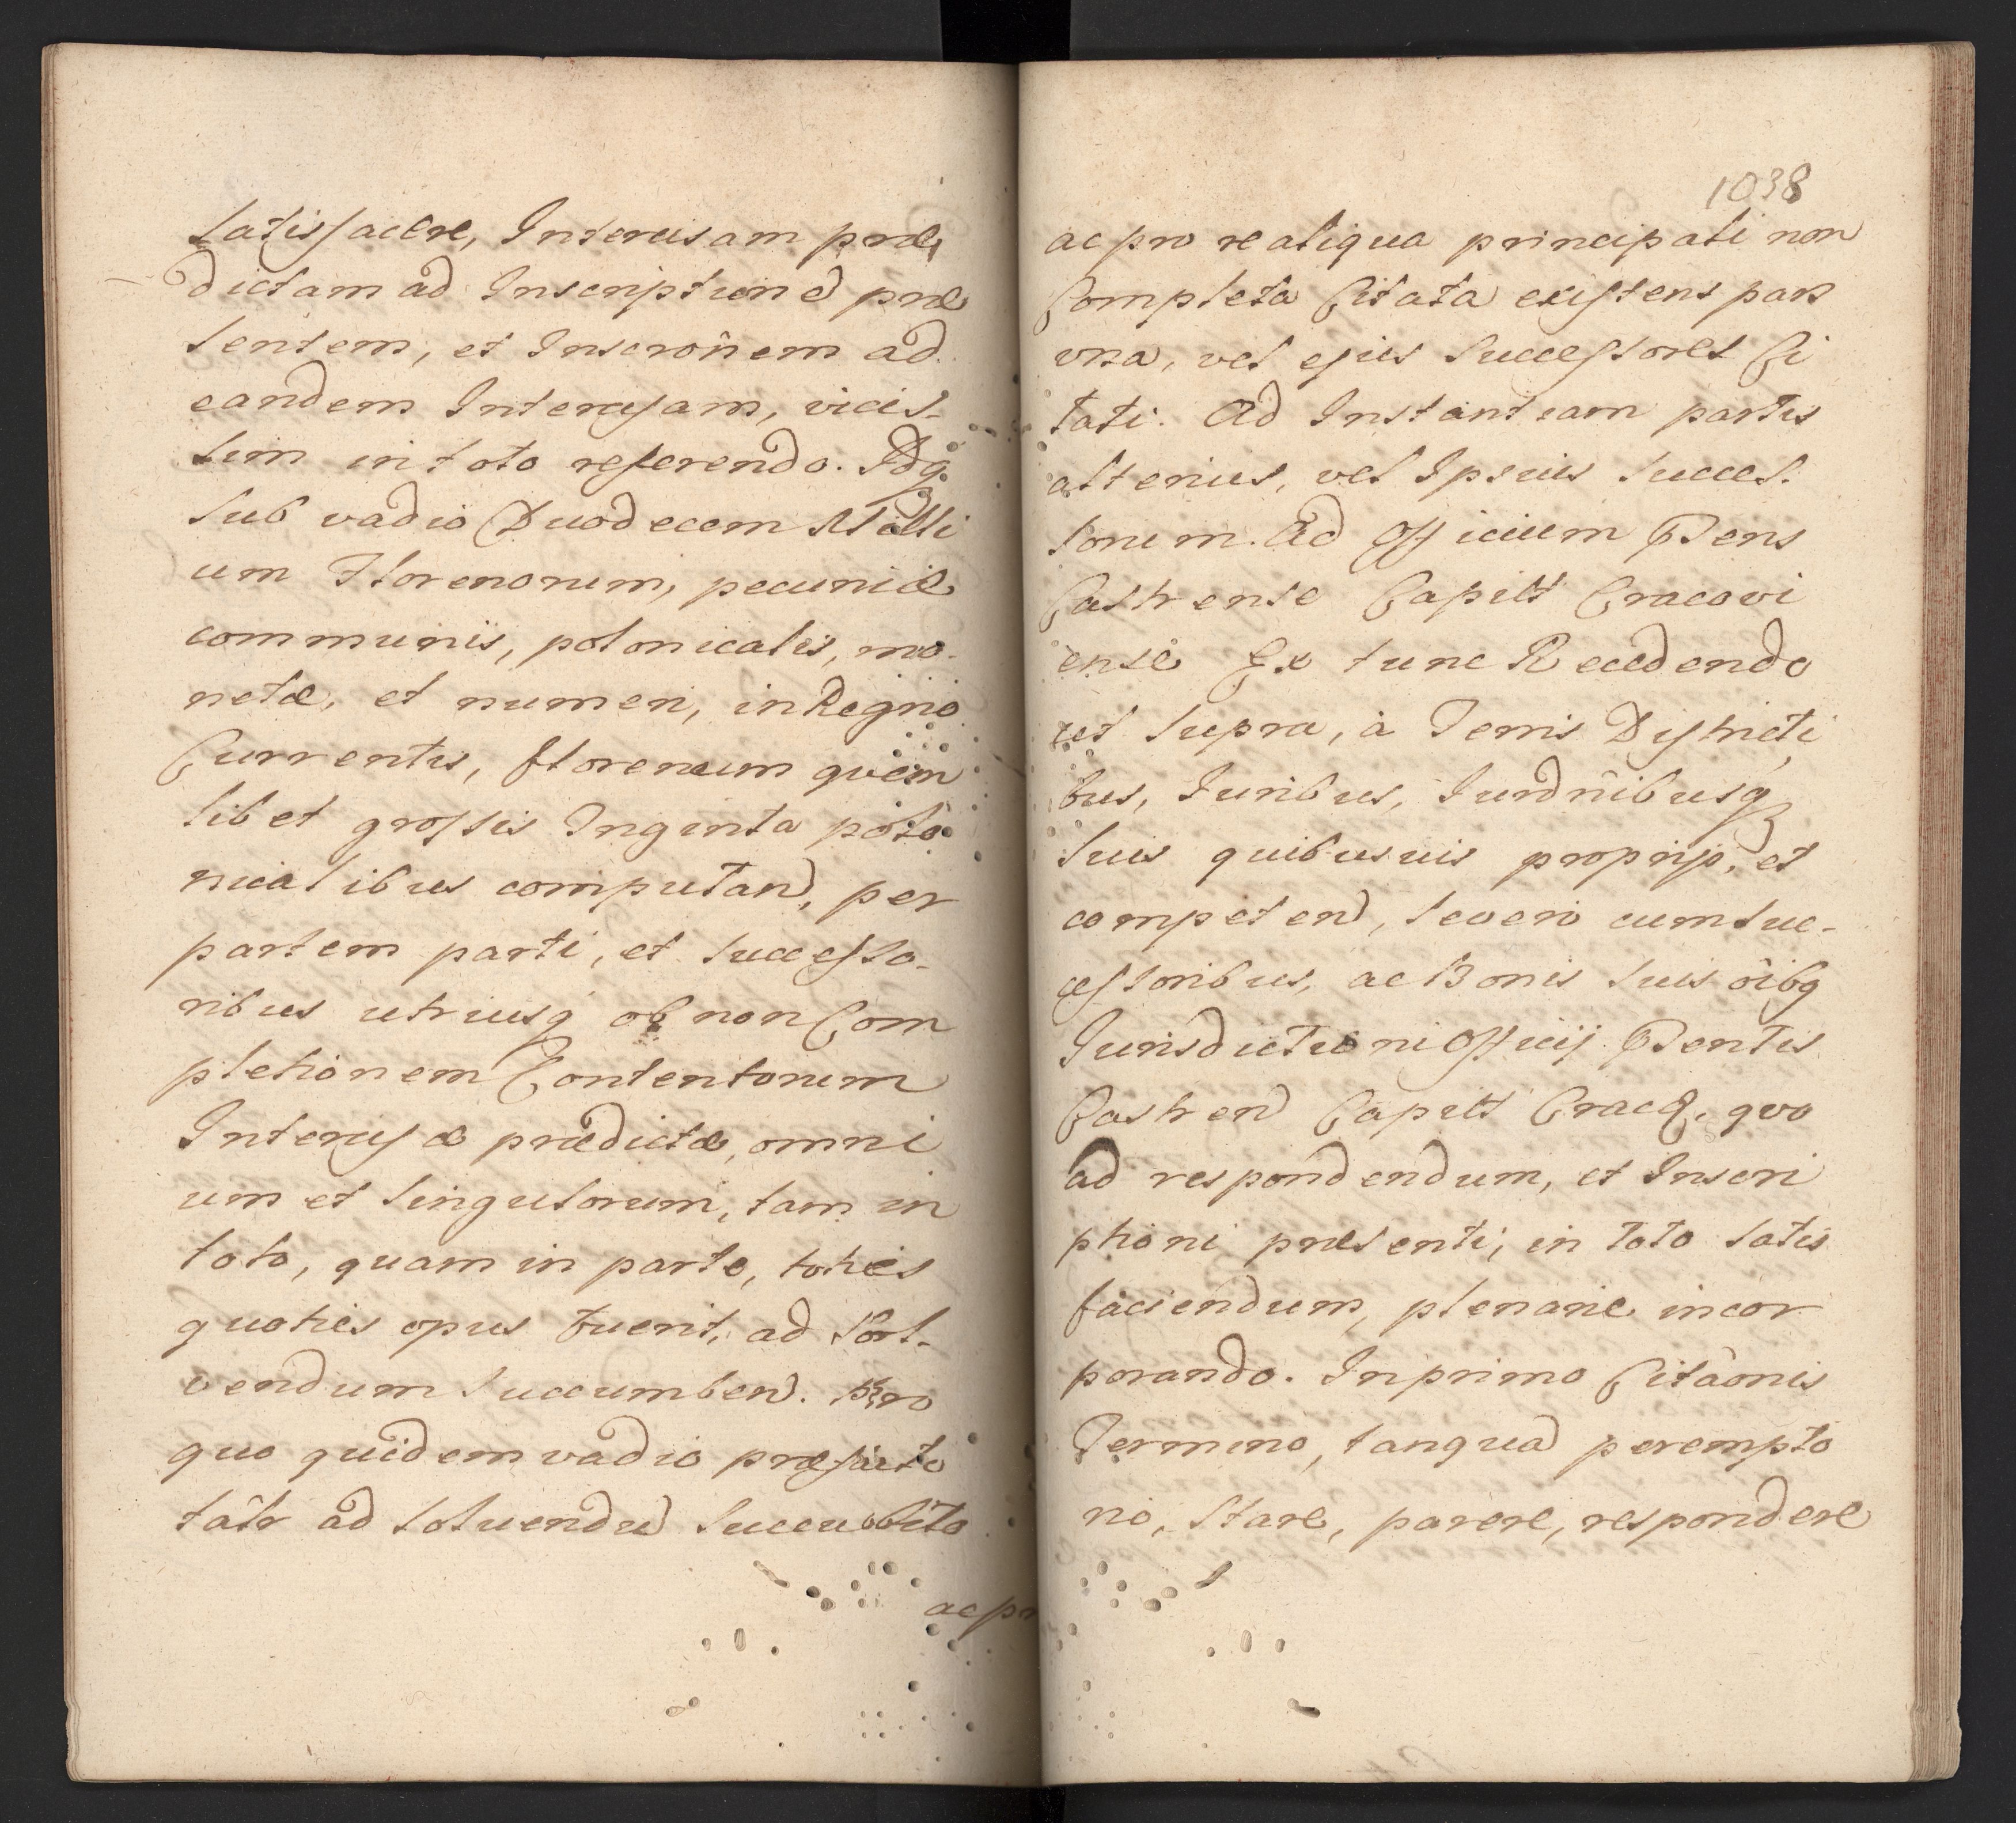 satisfacere, Intercisam præ,
dictam ad Inscriptione præ
sentem, et Inscrõnem ad
eandem Intercisam, vicis-
sim in toto referendo. Idq;
sub vadio Duodecem Milli
um Florenorum, pecuniæ
communis, polonicalis, mo-
netæ, et numeri, in Regno
Currentis, florenum quem
libet grossis Triginta polo
nicalibus computand, per
partem parti, et successo-
ribus utriusq ob non Com
pletionem Contentorum
Intercisæ prædictæ, omni
um et singulorum, tam in
toto, quam in parte, toties
quoties opus fuerit, ad sol-
vendum succumbend. Pro
quo quidem vadio præfacto
tãtr ad solvendu succubito
ac pr
1038
ac pro re aliqua principali non
Completa Citata existens pars
una, vel ejus successores Ci
tati. Ad Instantiam partis
alterius, vel Ipsius succes.
sorum. Ad Officium Psens
Castrense Capitt Cracovi
ense Ex tunc Recedendo
ut supra, à Terris Districti
bus, Iuribus, Iurdnibusq;
suis quibusuis proprijs, et
competend, se vero cum suc-
cessoribus, ac Bonis suis oibq
Iurisdictioni Officij Psentis
Castren Capitt Cracq, quo
ad respondendum, et Inscri
ptioni presenti, in toto satis
faciendum, plenarie incor
porando. In primo Citãonis
Termino, tanqua perempto
rio, stare, parere, respondere